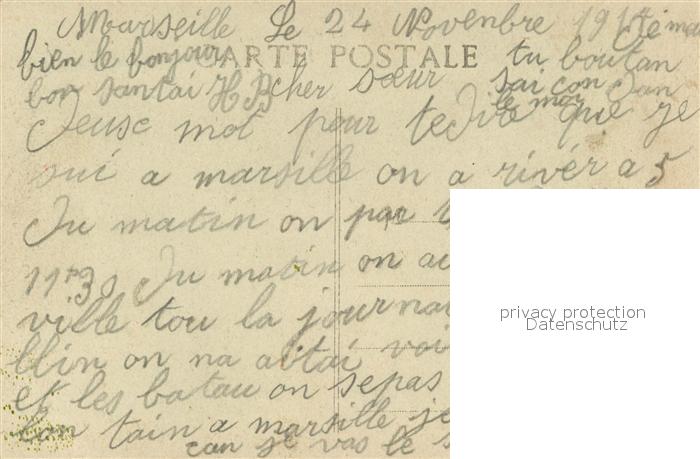 Marseille Le 24 Novenbre 1914
bien le bonjour CARTE POSTALE tu boutan
bon santai H B cher sœur sai con Jan
le mor
Deusc mot pour te Dire que je
sui a marsille on a rivér a 5
Du matin on par
11h30 Du matin on
ville tou la journai
llin on na aitai voi
et les batau on sepas
ton tain a marsille je
can je vas le
privacy protection
Datenschutz